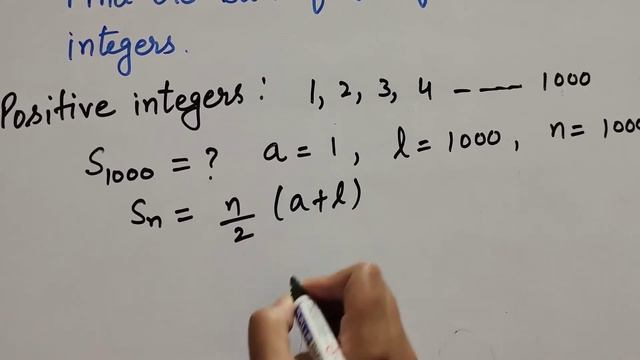 integers.
Positive integers : 1, 2, 3, 4 ----- 1000
S₁₀₀₀ = ? a = 1, l = 1000, n = 1000
Sₙ = n/2 (a+l)